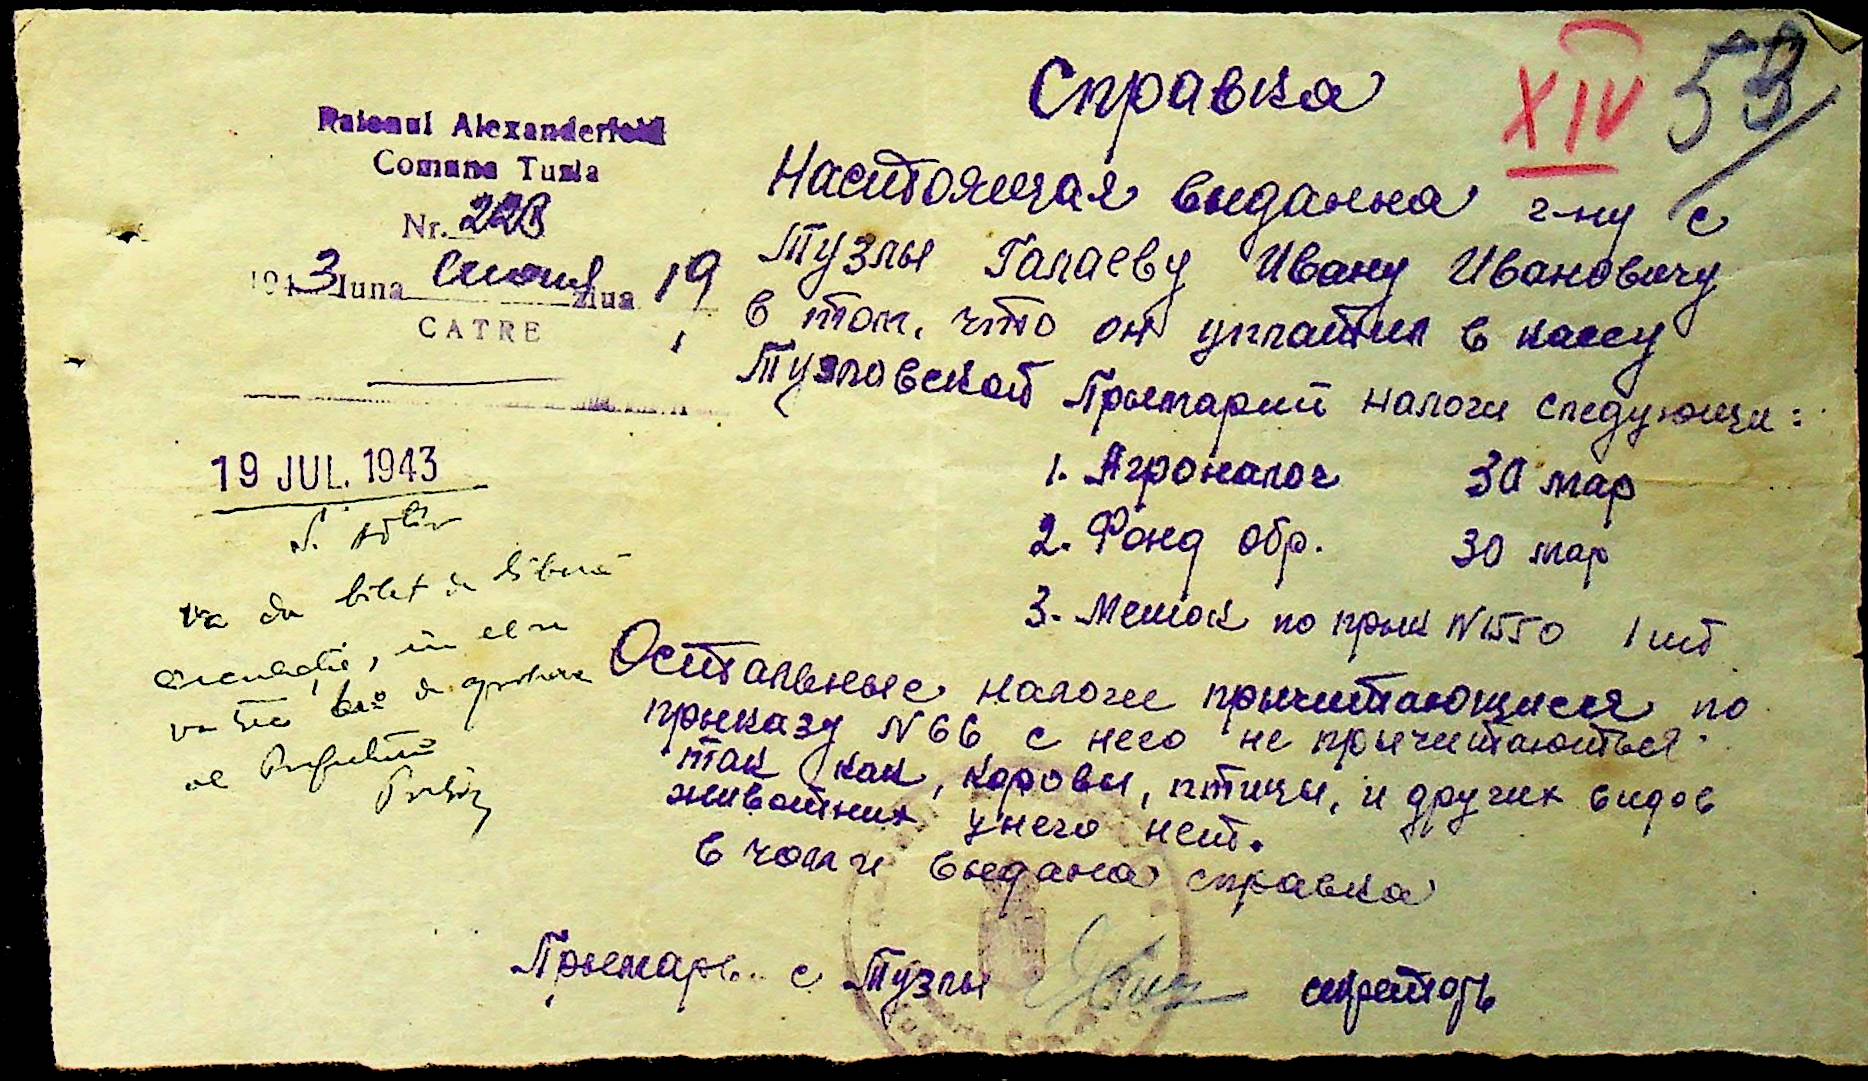 Справка
XIV 53
Raionul Alexanderfeld
Comuna Tuzla
Nr. 228
1943 luna Июль ziua 19
CATRE
Настоящая выданна г-ну с
Тузлы Галаеву Ивану Ивановичу
в том, что он уплатил в кассу
Тузловской Прымарии налоги следующи:
1. Агроналог 30 мар
2. Фонд обр. 30 мар
3. Мешок по прык N 1550 1 шт
Остальные налоги прычитающиеся по
прыказу N 66 с него не прычитаються
так как, коровы, птицы, и других видов
животних у него нет.
в чом и выдана справка
Прымарь с Тузлы секреторь
19 JUL. 1943
va da bilet de liberă
circulație, în
va